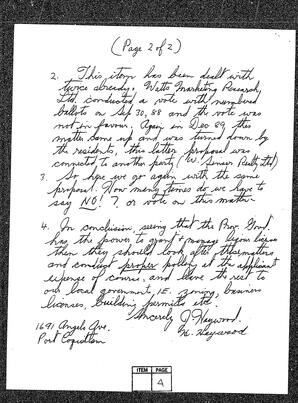 (Page 2 of 2)
2. This item has been dealt with
twice already. Watts Marketing Research,
Ltd. conducted a vote with numbered
ballots on Sep 30, 88 and the vote was
not in favour. Again in Dec 89 this
matter came up and was turned down by
the residents, this latter proposal was
connected to another party (W. Realty Ltd)
3. So here we go again with the same
proposal. How many times do we have to
say NO! ?, or vote on this matter.
4. In conclusion, seeing that the Prov. Govt.
has the power to grant & manage liquor licenses
then they should look after these matters
and conduct proper polling at the applicants
expense of course, and leave the rest to
our local government, IE. zoning, business
licenses, building permits etc.
Sincerely J. Haywood.
1691 Angelo Ave. N. Haywood
Port Coquitlam
ITEM PAGE
4